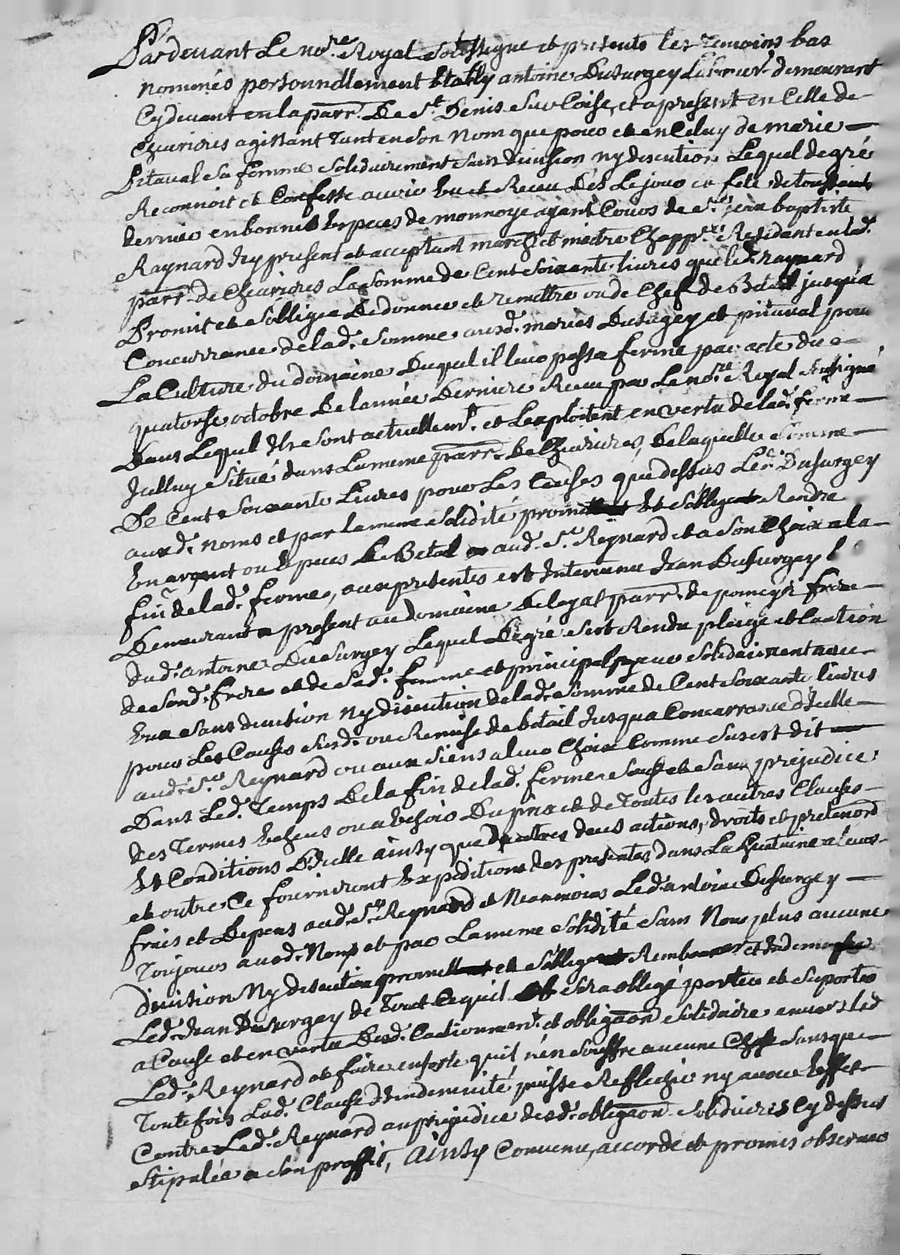 Pardevant Le no.re Royal soussigné et presents les temoins bas
nommés personnellement Etably antoine Dusurgey Laboureur demeurant
Cy devant en la parr. De St. Denis sur Coise, et a present en Celle de
Chevrieres agissant tant en son Nom que pour et en Celuy de marie
Pitaval sa femme solidairement sans division ny discution Lequel de gré
Reconnoit et Confesse avoir Eu et Receu Dés Le jour et fete de toussaint
dernier en bonnes Especes de monnoye ayant Cours de s.r jean baptiste
Raynard Icy present et acceptant march. et maitre Chapp. Residant en lad.
parr. de Chevrieres La somme de Cent soixante livres que led. Raynard
Promit et s'obligea De donner et remettre ou de Chef de Bétail jusqu'a
Concurrance de lad. somme ausd. mariés Dusurgey et pitaval pour
La Culture du domaine Duquel il leur passa ferme par acte du
quatorse octobre De l'année Derniere Receu par Le no.re Royal soussigné
Dans Lequel Ils sont actuellem.t et L'exploitent en vertu de lad. ferme
Icelluy situé dans La meme parr. De Chevrieres, De laquelle somme
De Cent soixante Livres pour Les Causes que dessus Led. Dusurgey
aux d. noms et par la meme solidité promet et s'oblige Rendre
En argent ou Especes De Betail aud. S.r Reynard et a son Choix a la
fin de lad. ferme, aux presentes est Intervenu Jean Dusurgey
Demeurant a present au Domaine De legat parr. de pomeys frere
dud. antoine Dusurgey Lequel De gré s'est Rendu pleige et Caution
de sond. frere et de sad. femme et principal payeur solidairement avec
Eux sans division Ny discution de lad. somme de Cent soixante livres
pour Les Causes susd. ou Remise de bétail Jusqu'a Concurrance d'Icelle
aud. s.r Reynard ou aux siens a leur Choix Comme sus est dit
Dans Led. Temps De la fin de lad. ferme sauf et sans prejudice
des Termes Echeus ou a Echoir Du prix et de Toutes les autres Clauses
Et Conditions D'Icelle ainsy que D'autres deus actions, droits et pretentions
et outre Ce fourniront Expeditions des presentes dans La huitaine a leurs
frais et Depens aud. S.r Reynard et Neanmoins Led. antoine Dusurgey
Toujours aux d. Noms et par La meme solidité sans Non plus aucune
division Ny discution promet et s'oblige Rembourser et Indemniser
Led. Jean Dusurgey de Tout Ce qu'il sera obligé porter et suporter
a Cause et en vertu Desd. Cautionnem.t et obligaõn solidaire envers led.
Led. Reynard et faire en sorte qu'il n'en souffre aucune Chose sans que
Toutefois Lad. Clause d'indemnité puisse Reflechir ny avoir Effet
Contre Led. Reynard au prejudice desd. obligaõn solidaires Cy dessus
stipulée a son proffit, Ainsy Convenu, accordé et promis observer